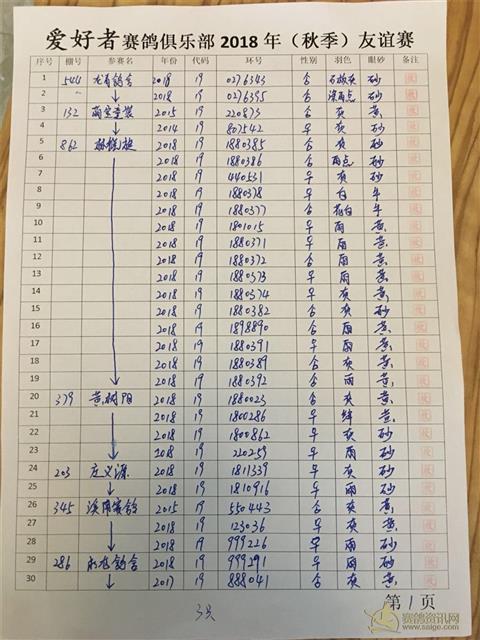 爱好者赛鸽俱乐部2018年（秋季）友谊赛
序号 棚号 参赛名 年份 代码 环号 性别 羽色 眼砂 备注
1 544 2018 19 0276343 合 石板灰 砂
2 2018 19 0276395 合 深雨点 砂
3 132 2015 19 220873 合 灰 黄
4 2014 19 807542 早 灰 砂
5 862 2018 19 1880385 合 灰 砂
6 2018 19 1880386 合 雨点 砂
7 2018 19 440531 早 灰 砂
8 2018 19 1880378 早 白 牛
9 2018 19 1880377 合 花白 牛
10 2018 19 1801015 早 雨 黄
11 2018 19 1880371 早 雨 黄
12 2018 19 1880372 合 雨 黄
13 2018 19 1880373 早 雨 黄
14 2018 19 1880374 早 灰 黄
15 2018 19 1880382 合 灰 砂
16 2018 19 1898890 合 雨 黄
17 2018 19 1880391 早 雨 黄
18 2018 19 1880389 合 灰 黄
19 2018 19 1880392 合 雨 黄
20 379 黄树阳 2018 19 1880023 合 灰 黄
21 2018 19 1800286 早 绛 黄
22 2018 19 1800862 早 灰 砂
23 2018 19 220259 早 雨 砂
24 203 庄义源 2018 19 1811339 早 灰 砂
25 2018 19 1810916 早 雨 砂
26 345 溪南赛鸽 2015 19 550443 合 灰 黄
27 2018 19 123036 早 灰 黄
28 2018 19 999226 早 雨 砂
29 286 2018 19 999291 早 雨 砂
30 2017 19 888041 合 灰 黄
第1页
赛鸽资讯网
www.saige.com